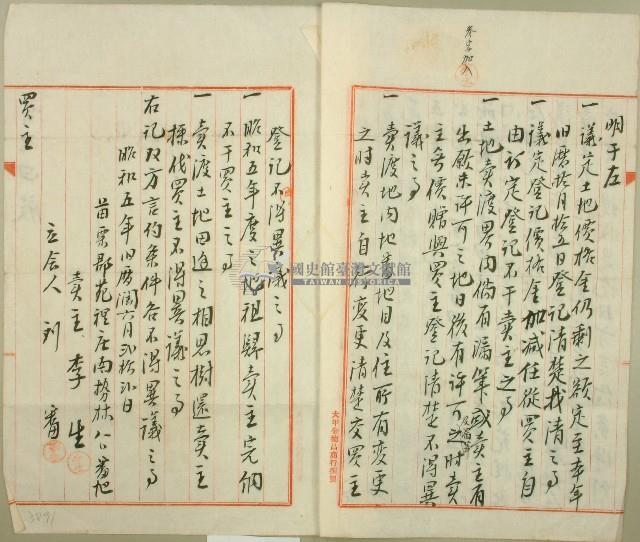 明于左
一議定土地價格金仍剩之額定至本年
旧曆拾月拾五日登記清楚找清之事
一議定登記價格金加減任從買主自
由訂定登記不干賣主之事
一土地賣渡界内倘有漏筆或賣主有
出願未許可之地日後有許可之時賣
主無價贈與買主登記清楚不得異
議之事
一賣渡地内地目及住所有變更
之時賣主自 變更清楚交買主
登記不得異議之事
一昭和五年度之 租歸賣主完納
不干買主之事
一賣渡土地四週之相思樹還賣主
採伐買主不得異議之事
右記双方言約条件各不得異議之事
昭和五年旧曆潤六月 日
苗栗郡苑裡庄南勢林 番地
賣主 李 生
立会人 刘
買主
參字加入
國史館臺灣文獻館
TAIWAN HISTORICA